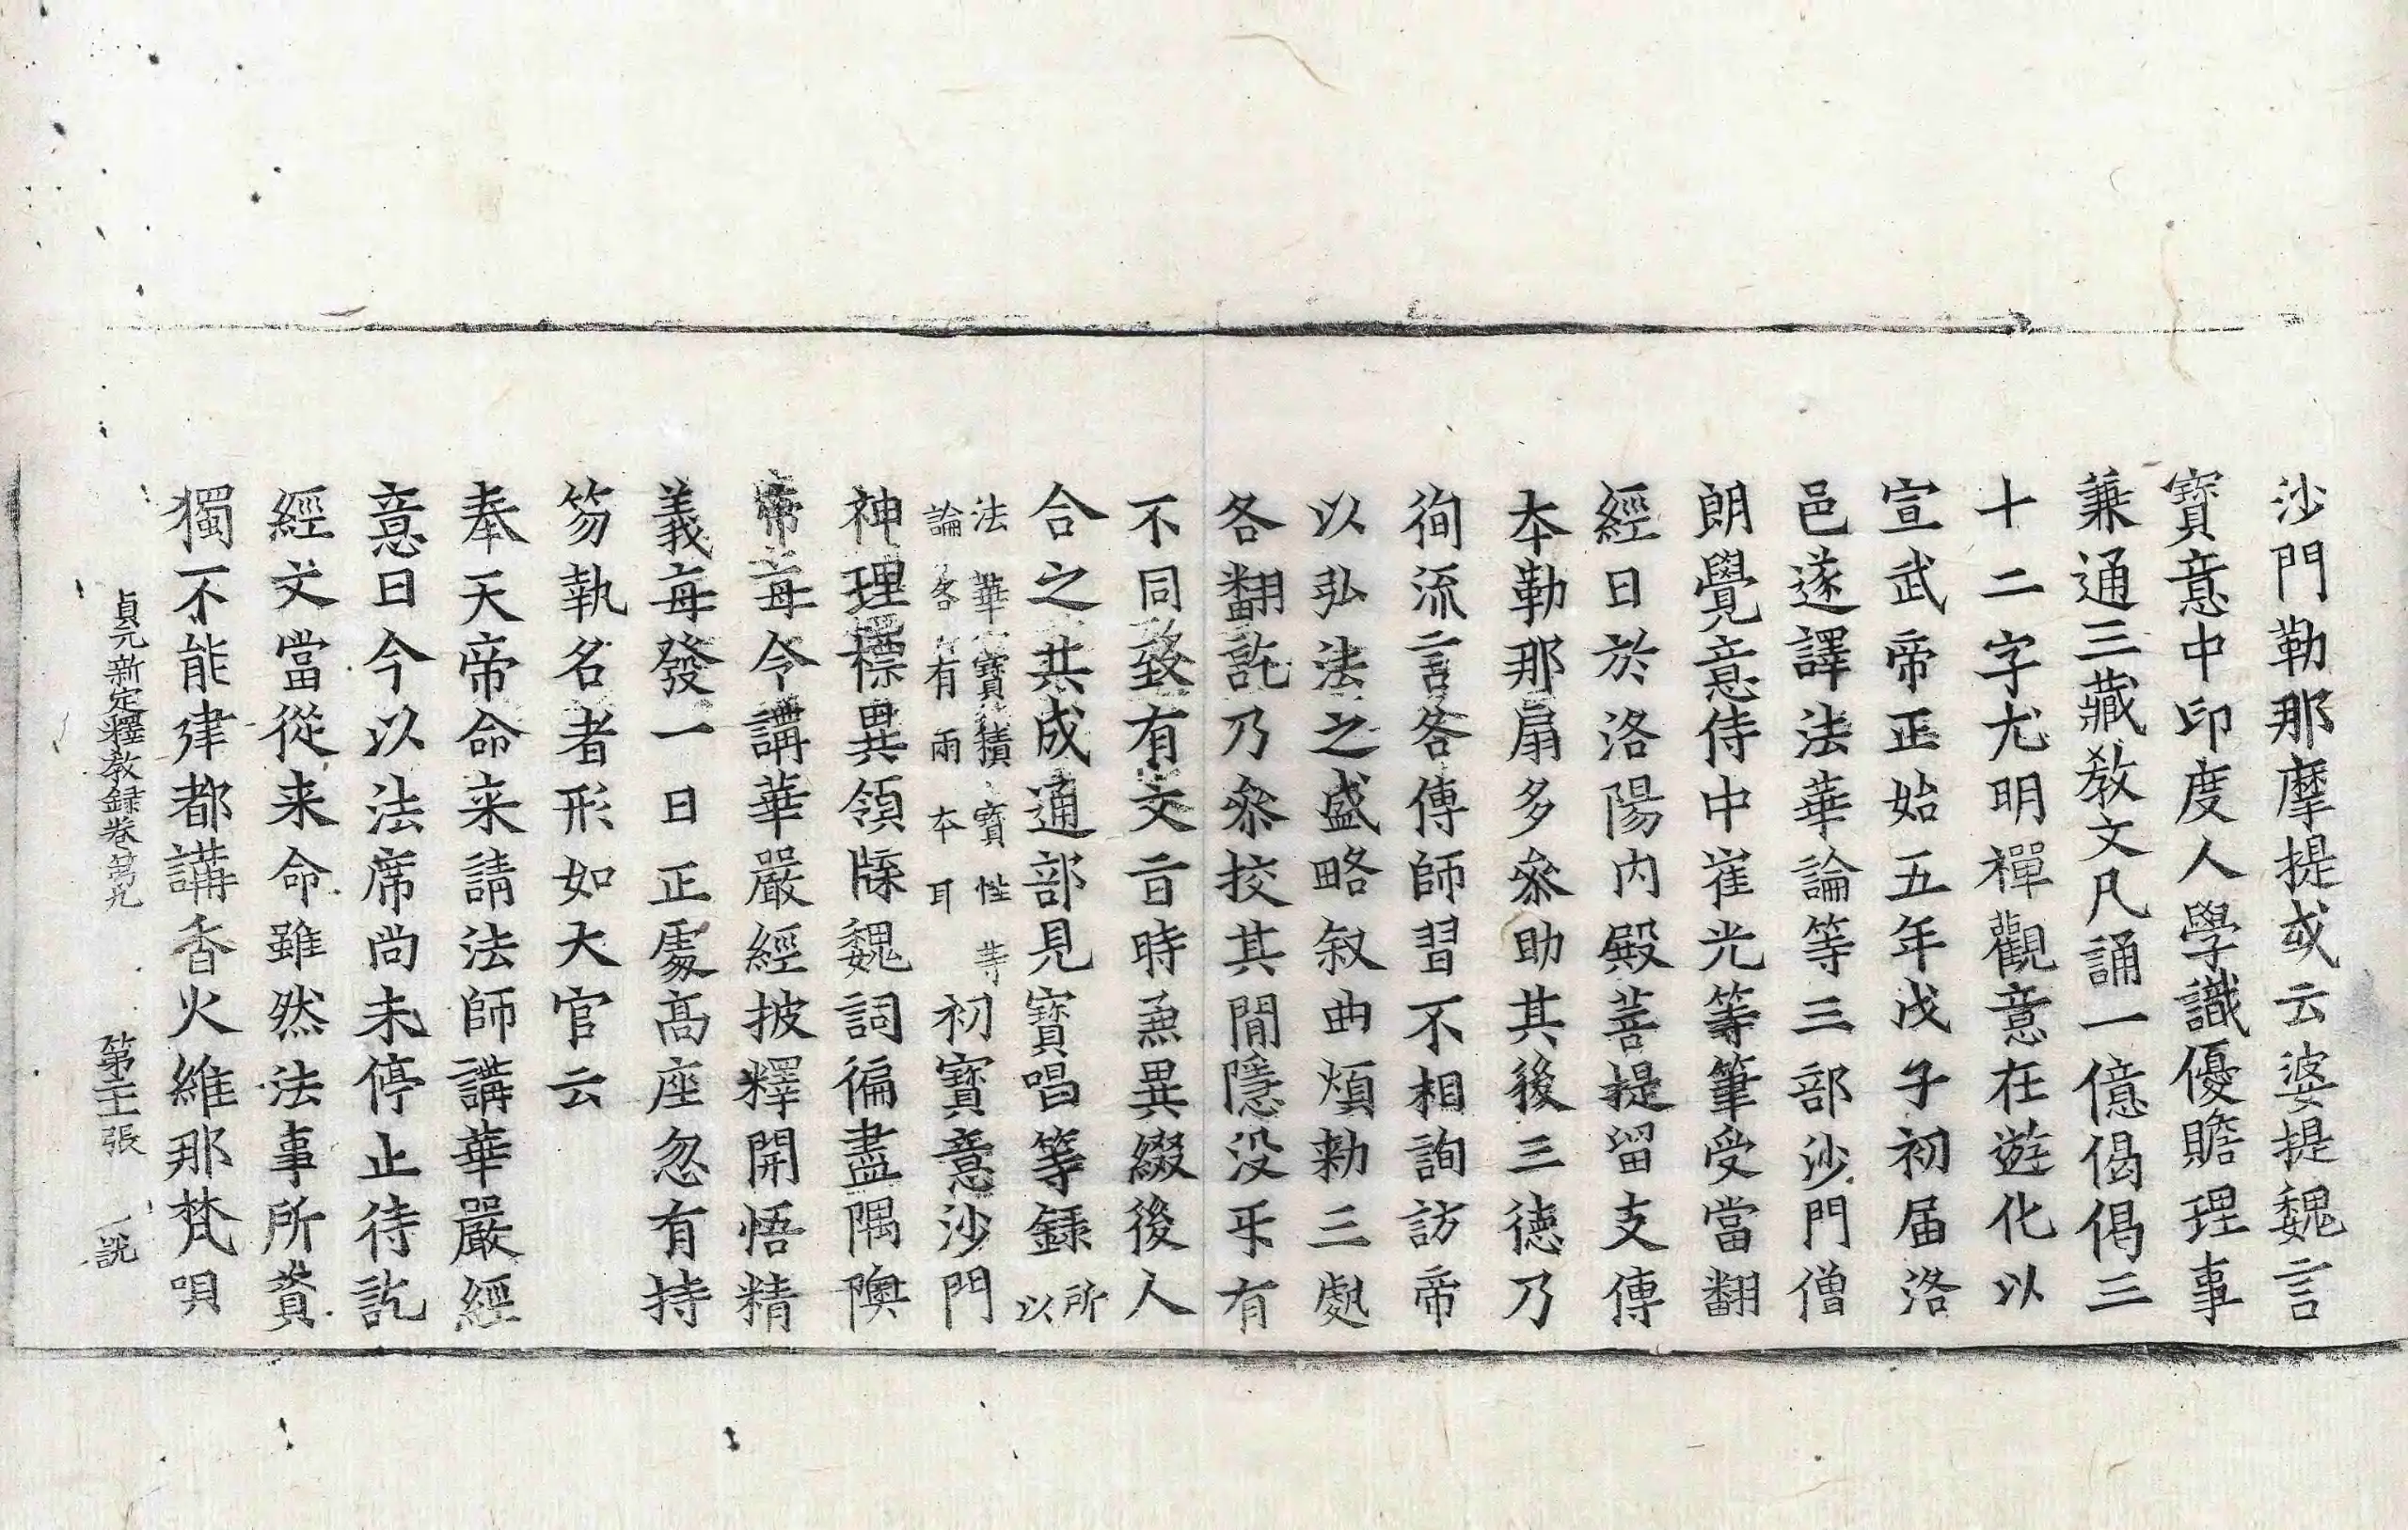 沙門勒那摩提或云婆提魏言
寶意中印度人學識優贍理事
兼通三藏教文凡誦一億偈偈三
十二字尤明禪觀意在遊化以
宣武帝正始五年戊子初届洛
邑遂譯法華論等三部沙門僧
朗覺意侍中崔光等筆受當翻
經日於洛陽内殿菩提留支傳
本勒那扇多叅助其後三德乃
徇流言各傳師習不相詢訪帝
以弘法之盛略叙曲煩勑三處
各翻訖乃叅挍其間隱没乎有
不同致有文旨時兼異綴後人
合之共成通部見寶唱等録所以
法華寶積寶性等
論各有兩本耳
初寶意沙門
神理標異領牒魏詞徧盡隅隩
帝每令講華嚴經披釋開悟精
義每發一日正處高座忽有持
笏執名者形如大官云
奉天帝命来請法師講華嚴經
意曰今以法席尚未停止待訖
經文當從来命雖然法事所資
獨不能建都講香火維那梵唄
貞元新定釋教録卷第九 第二十三張